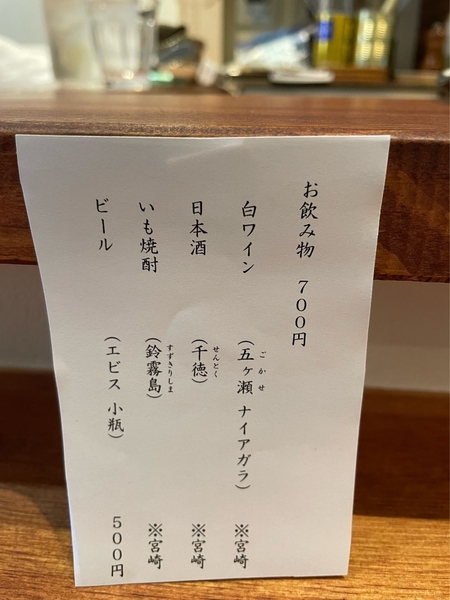 お飲み物 700円
白ワイン (五ヶ瀬 ナイアガラ) ※宮崎
ごかせ
日本酒 (千徳) ※宮崎
せんとく
いも焼酎 (鈴霧島) ※宮崎
すずきりしま
ビール (エビス 小瓶) 500円